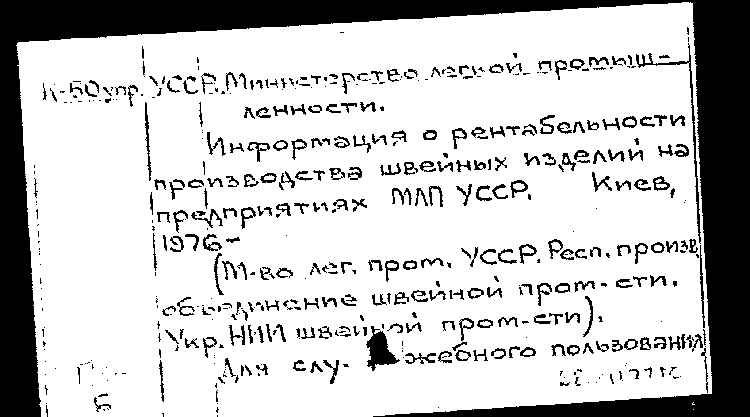 К-50упр. УССР. Министерство легкой промыш-
ленности.
Информация о рентабельности
производства швейных изделий на
предприятиях МЛП УССР. Киев,
1976-
(М-во лег. пром. УССР. Респ. произв.
объединение швейной пром-сти.
Укр. НИИ швейной пром-сти).
Для слу- жебного пользования
Б